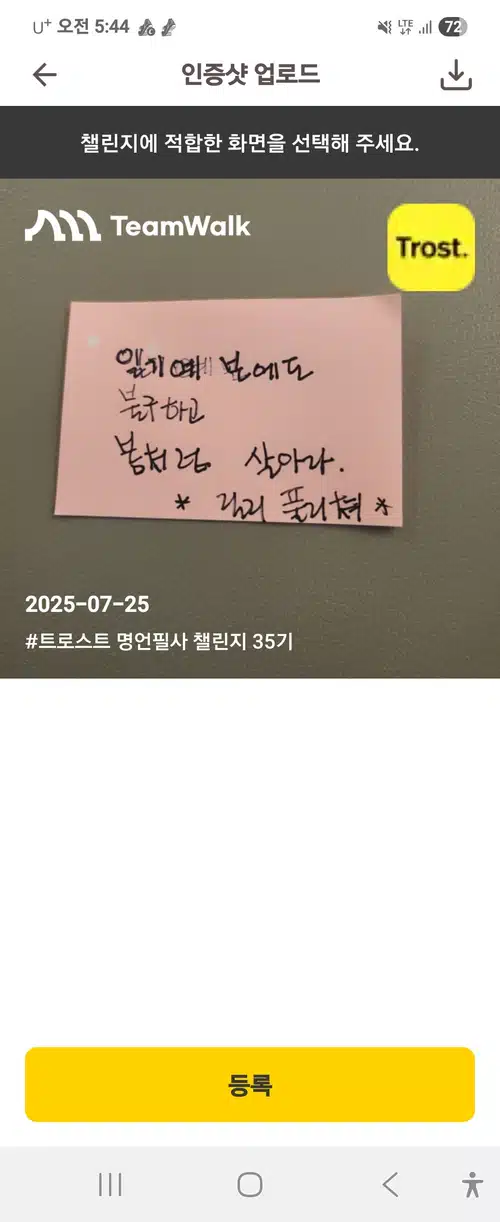 U+ 오전 5:44
LTE
72
인증샷 업로드
챌린지에 적합한 화면을 선택해 주세요.
TeamWalk
Trost.
일기예보에도
불구하고
봄처럼 살아라.
* 릴리 플리쳐 *
2025-07-25
#트로스트 명언필사 챌린지 35기
등록